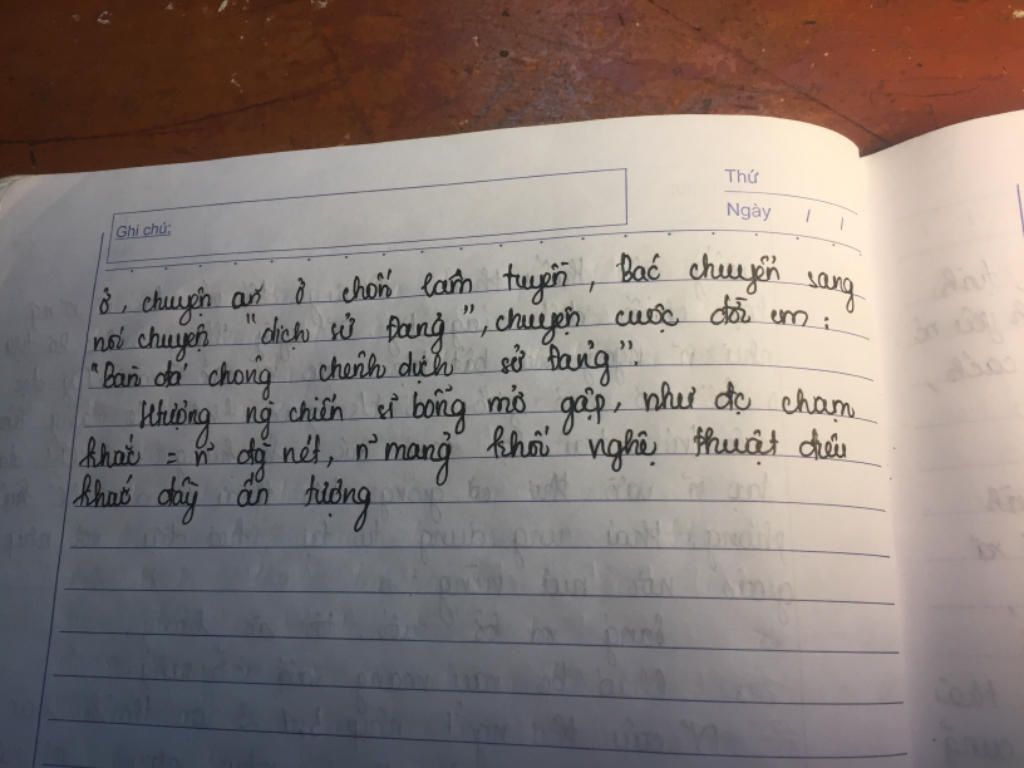 Thứ
Ngày / /
Ghi chú:
ở, chuyện ăn ở chốn lâm tuyền, Bác chuyển sang
nói chuyện "dịch sử Đảng", chuyện cuộc đời cm:
"Bàn đá chông chênh dịch sử Đảng".
Htượng ng chiến sĩ bỗng mở gấp, như đc chạm
khắc = n~ đg nét, n~ mảng khối nghệ thuật điêu
khắc đầy ấn tượng